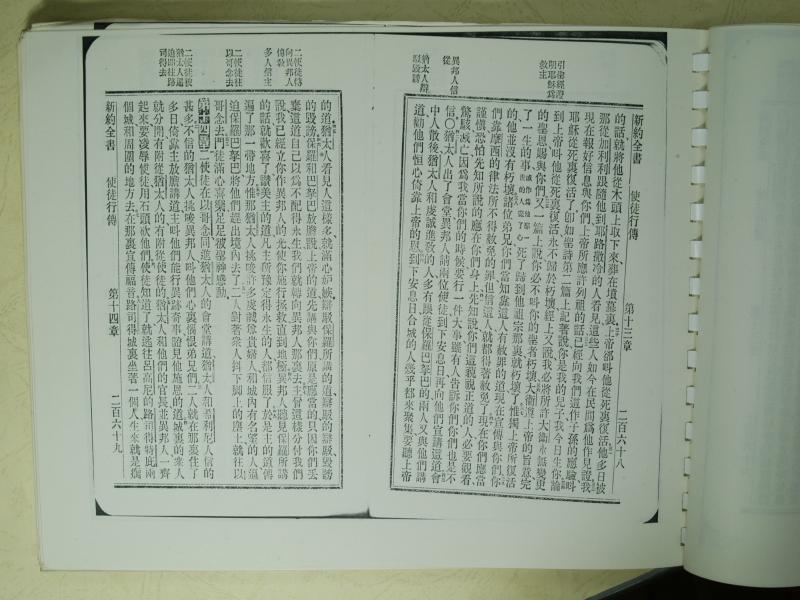 新約全書 使徒行傳 第十三章 二百六十八
引聖經證明耶穌為救主
異邦人信從
猶太人辯駁毀謗
的話就將他從木頭上取下來葬在墳墓裏上帝卻叫他從死裏復活他多日被
那從加利利跟隨他到耶路撒冷的人看見這些人如今在民間為他作見證我
現在報好信息與你們上帝所應許列祖的話已經向我們這作子孫的應驗叫
耶穌從死裏復活了卽如聖詩第二篇上記著說你是我的兒子我今日生你論
到上帝叫他從死裏復活永不歸於朽壞經上又說我必將所許大衛永無變更
的聖恩賜與你們又一篇上說你必不叫你的聖者朽壞大衛遵上帝的旨意完
了一生的事或作為他那一世的人盡了心死了歸到他祖宗那裏就朽壞了惟獨上帝所復活
的他並沒有朽壞諸位弟兄你們當知靠這人有赦罪的道現在宣傳與你們你
們靠摩西的律法所不得赦免的罪但信這人就都得著赦免了現在你們應當
謹愼恐怕先知所說的應在你們身上先知說你們這藐視正道的人必要觀看
驚駭滅亡因為我當你們的時候要行一件大事雖有人告訴你們你們也是不
信○猶太人出了會堂異邦人請兩位使徒到下安息日再向他們宣講這道會
中人散後猶太人和虔誠進敎的人多有跟從保羅巴拏巴的兩人又與他們講
道勸他們恒心倚靠上帝的恩到下安息日合城的人幾乎都來聚集要聽上帝
二使徒轉向異邦人傳敎多人信主
二使徒往以哥念去
二使徒被猶太人逼迫卽往路司得去
的道猶太人看見人這樣多就滿心妒嫉辯駁保羅所講的道辯駁的辯駁毀謗
的毀謗保羅和巴拏巴放膽說上帝的道先講與你們原是應當的只因你們丟
棄這道自己以為不配得永生我們就轉向異邦人那裏去主曾這樣分付我們
說我已經立你作異邦人的光使你施行拯救直到地極異邦人聽見保羅所講
的話就歡喜了讚美主的道凡主所豫定得永生的人都信服了於是主的道傳
遍了那一帶地方惟那猶太人挑唆許多虔誠尊貴婦人和城內有名望的人逼
迫保羅巴拏巴將他們趕出境內去了二人對著衆人抖下脚上的塵土就往以
哥念去門徒滿心喜樂足足被聖神感動
第十四章二使徒在以哥念同進猶太人的會堂講道猶太人和希利尼人信的
甚多不信的猶太人挑唆異邦人叫他們心裏惱恨弟兄們二人就在那裏住了
多日倚靠主放膽講道主叫他們能行異跡奇事證見他施恩的道城裏的衆人
就分開有附從猶太人的有附從使徒的猶太人和他們的官長並異邦人一齊
起來要凌辱使徒用石頭砍他們使徒知道了就逃往呂高尼的路司得特庇兩
個城和周圍的地方去在那裏宣傳福音路司得城裏坐著一個人生來就是瘸
新約全書 使徒行傳 第十四章 二百六十九